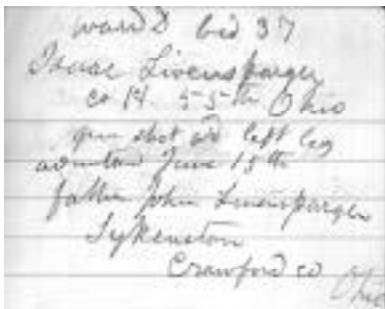 ward D bed 37
Isaac Livensparger
co H 55th Ohio
gun shot wd left leg
admitted June 15th
father John Livensparger
Sykenston
Crawford co Ohio